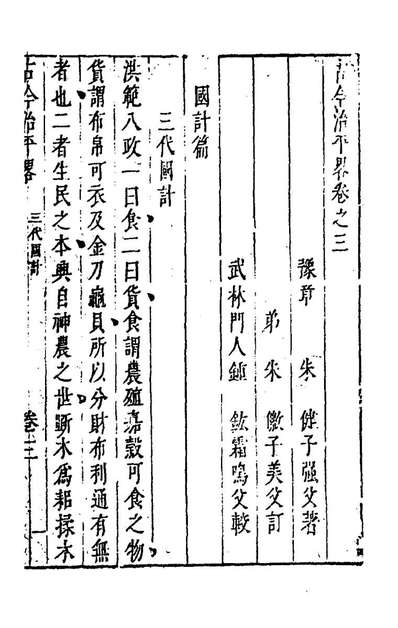 古今治平畧卷之三
豫章 朱 健子强父著
弟 朱 徽子美父訂
武林門人鍾 鈜霜鳴父較
國計篇
三代國計
洪範八政一曰食二曰貨食謂農殖嘉穀可食之物
貨謂布帛可衣及金刀龜貝所以分財布利通有無
者也二者生民之本興自神農之世斲木爲耜揉木
古今治平畧 三代國計 卷三 一